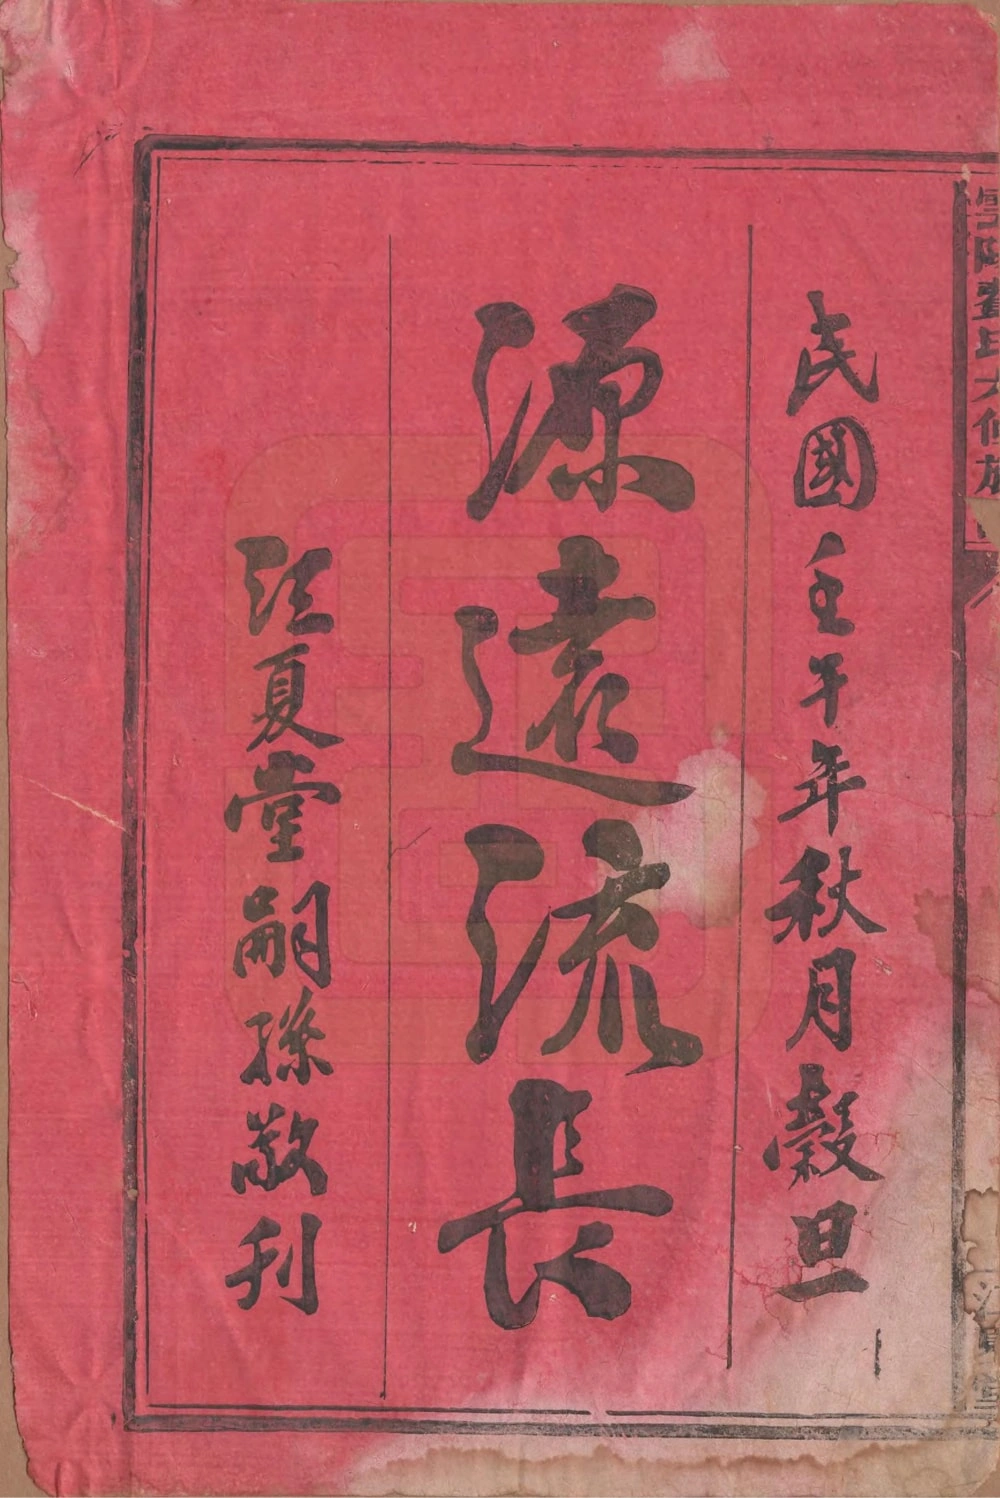 民國壬午年秋月穀旦
源遠流長
江夏堂嗣孫敬刊
氏大修族